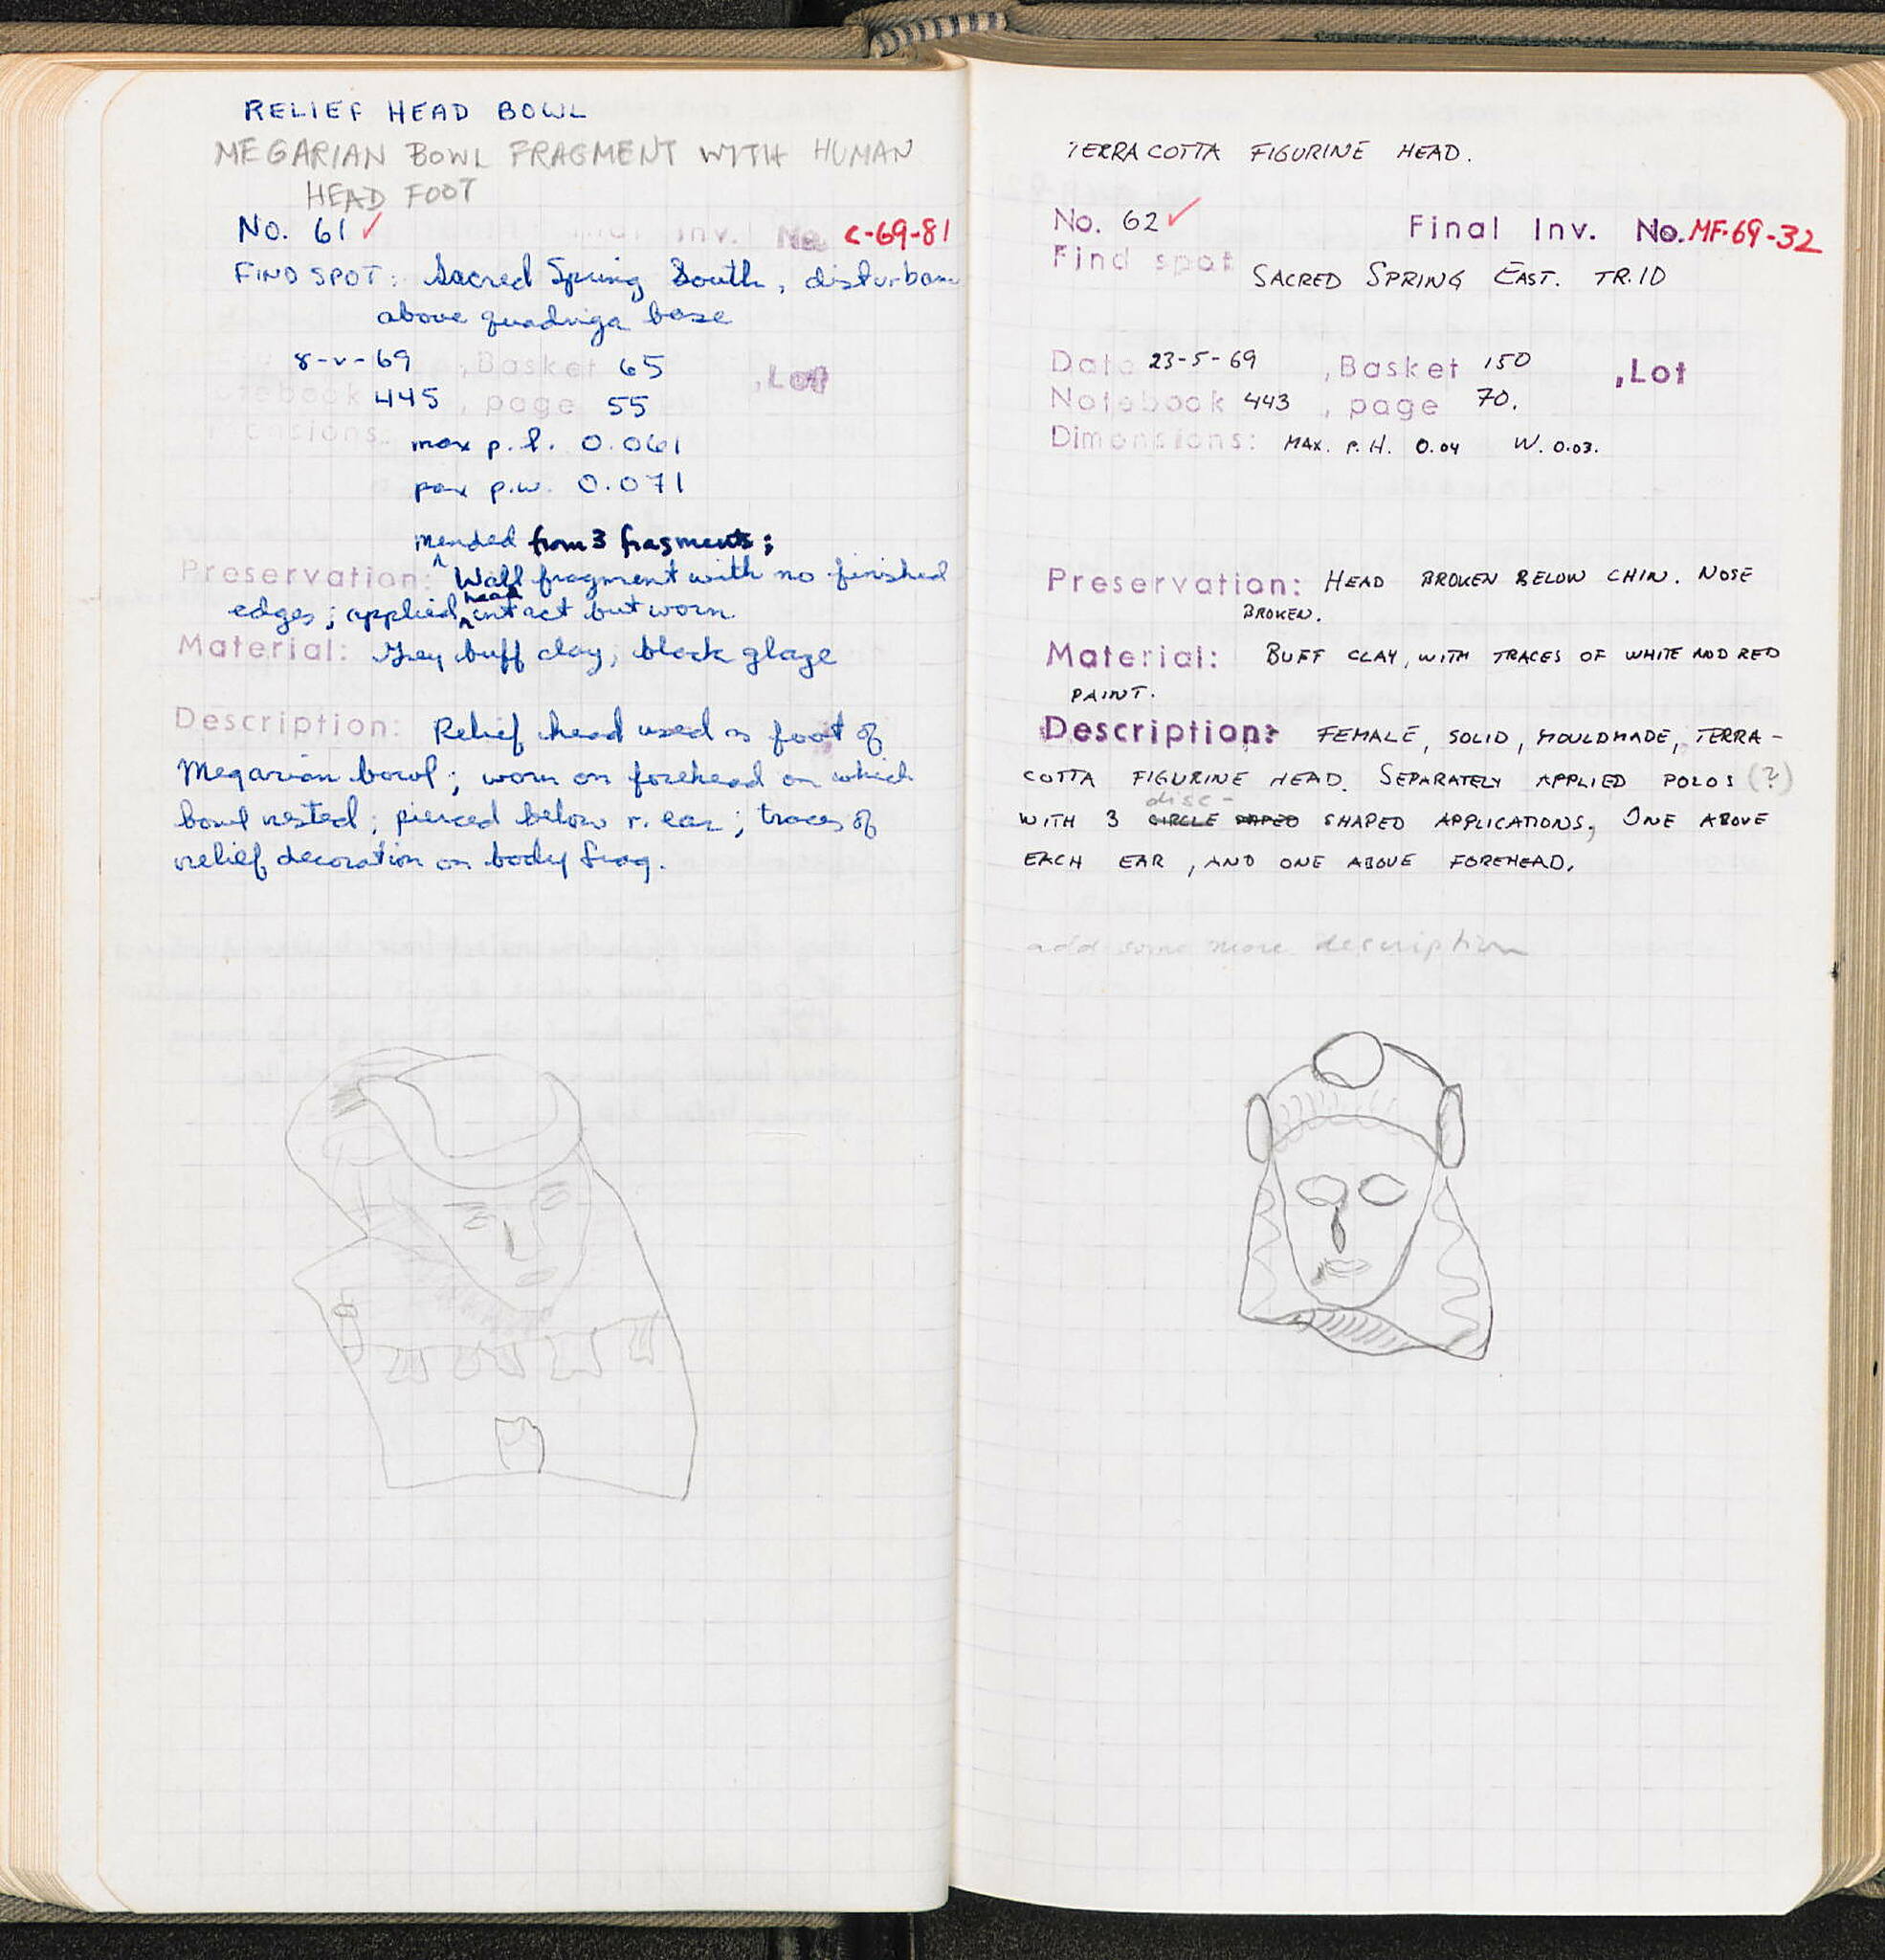 RELIEF HEAD BOWL
MEGARIAN BOWL FRAGMENT WITH HUMAN
HEAD FOOT
No. 61 ✓ inv. No. C-69-81
FIND SPOT: Sacred Spring South, disturbance
above quadriga base
8-v-69 , Basket 65 , Lot
445 , page 55
max p.l. 0.061
max p.w. 0.071
mended from 3 fragments;
Preservation: ^ Wall fragment with no finished
head
edges; applied ^ intact but worn.
Material: Grey buff clay, black glaze
Description: Relief head used as foot of
Megarian bowl; worn on forehead on which
bowl rested; pierced below r. ear; traces of
relief decoration on body frag.
TERRACOTTA FIGURINE HEAD.
No. 62 ✓ Final Inv. No. MF-69-32
Find spot SACRED SPRING EAST. TR. ID
Date 23-5-69 , Basket 150 , Lot
Notebook 443 , page 70.
Dimensions: MAX. P.H. 0.04 W. 0.03.
Preservation: HEAD BROKEN BELOW CHIN. NOSE
BROKEN.
Material: BUFF CLAY, WITH TRACES OF WHITE AND RED
PAINT.
Description: FEMALE, SOLID, MOULDMADE, TERRA-
COTTA FIGURINE HEAD. SEPARATELY APPLIED POLOS (?)
disc-
WITH 3 CIRCLE SHAPED APPLICATIONS, ONE ABOVE
EACH EAR, AND ONE ABOVE FOREHEAD.
add some more description